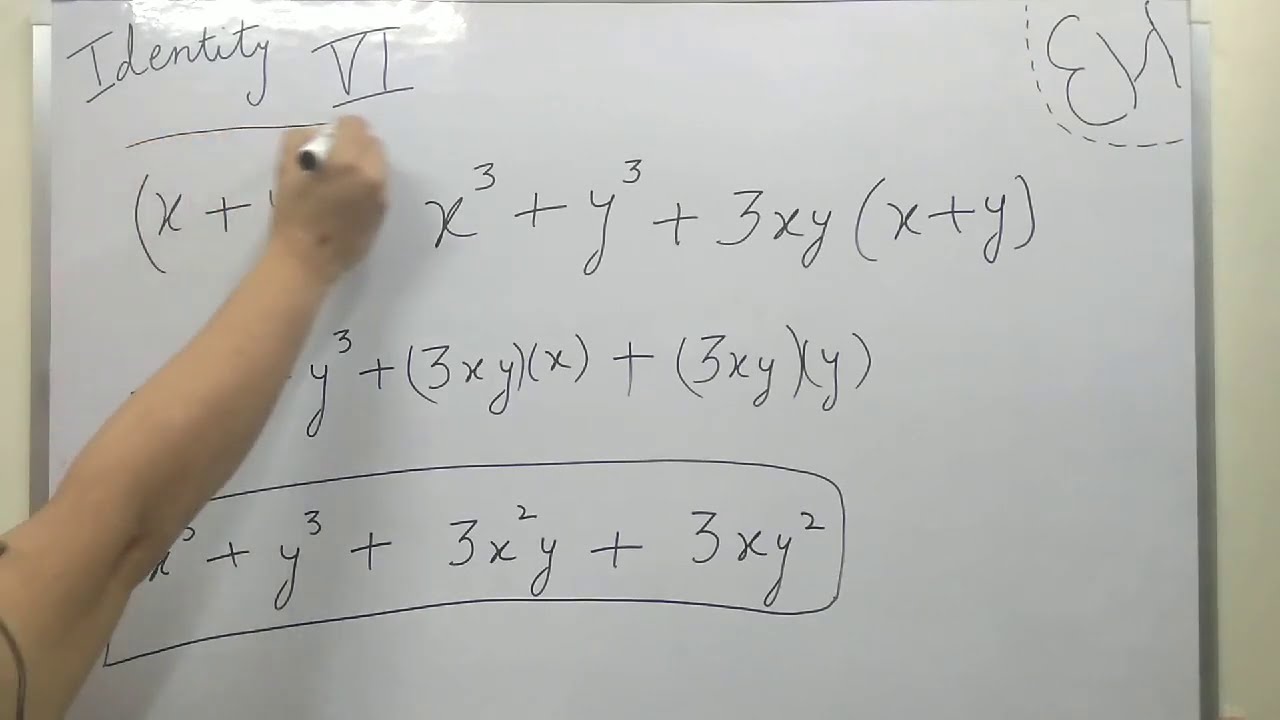 Identity VI
(x + x³ + y³ + 3xy (x+y)
y³ + (3xy)(x) + (3xy)(y)
x³ + y³ + 3x²y + 3xy²